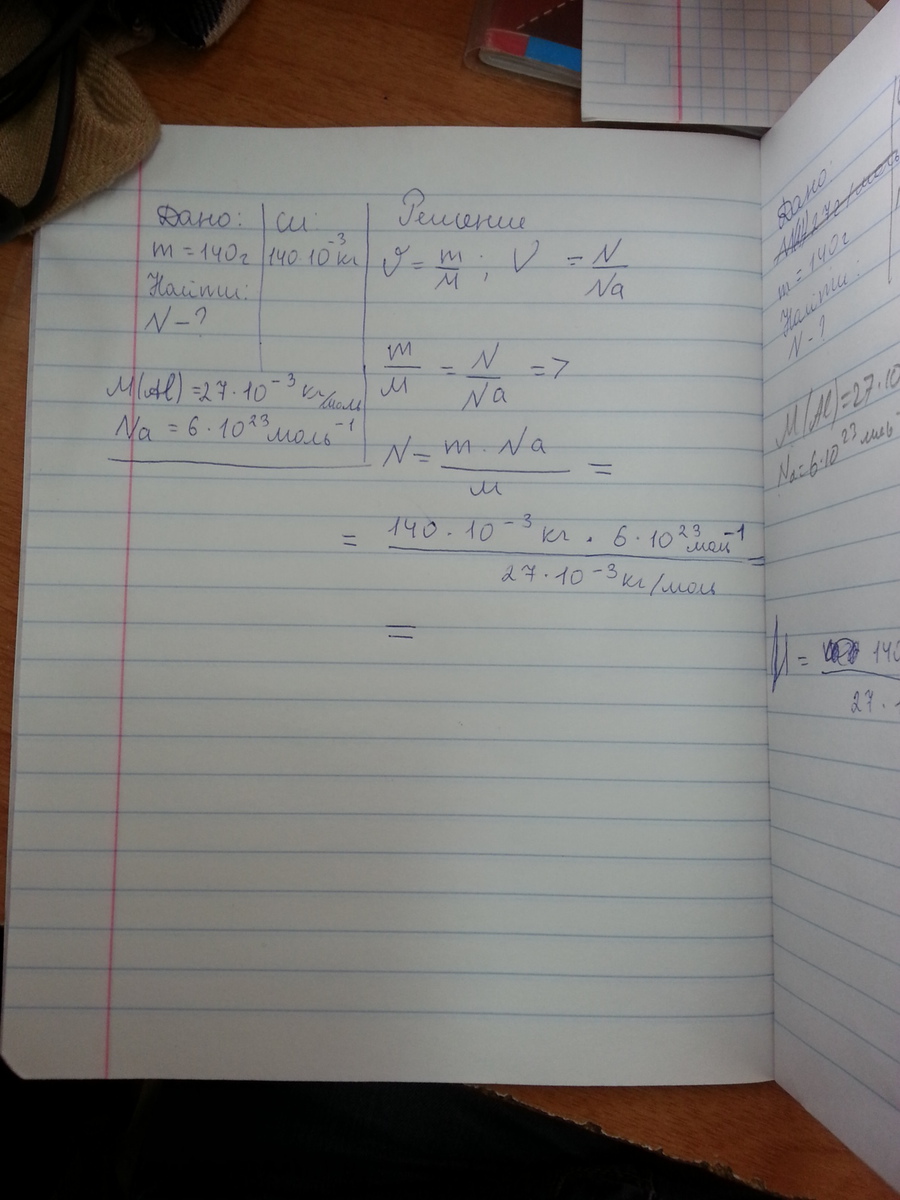 Дано:
m = 140г
Найти:
N - ?
M(Al) = 27·10⁻³ кг/моль
Na = 6·10²³ моль⁻¹
Си:
140·10⁻³ кг
Решение
ϑ = m/M ; V = N/Na
m/M = N/Na =>
N = m · Na / M =
= 140·10⁻³ кг · 6·10²³ мол⁻¹ / 27·10⁻³ кг/моль =
=
Дано:
m = 140г
Найти:
N - ?
M(Al) = 27·10
Na = 6·10²³ моль
= 140
27 ·